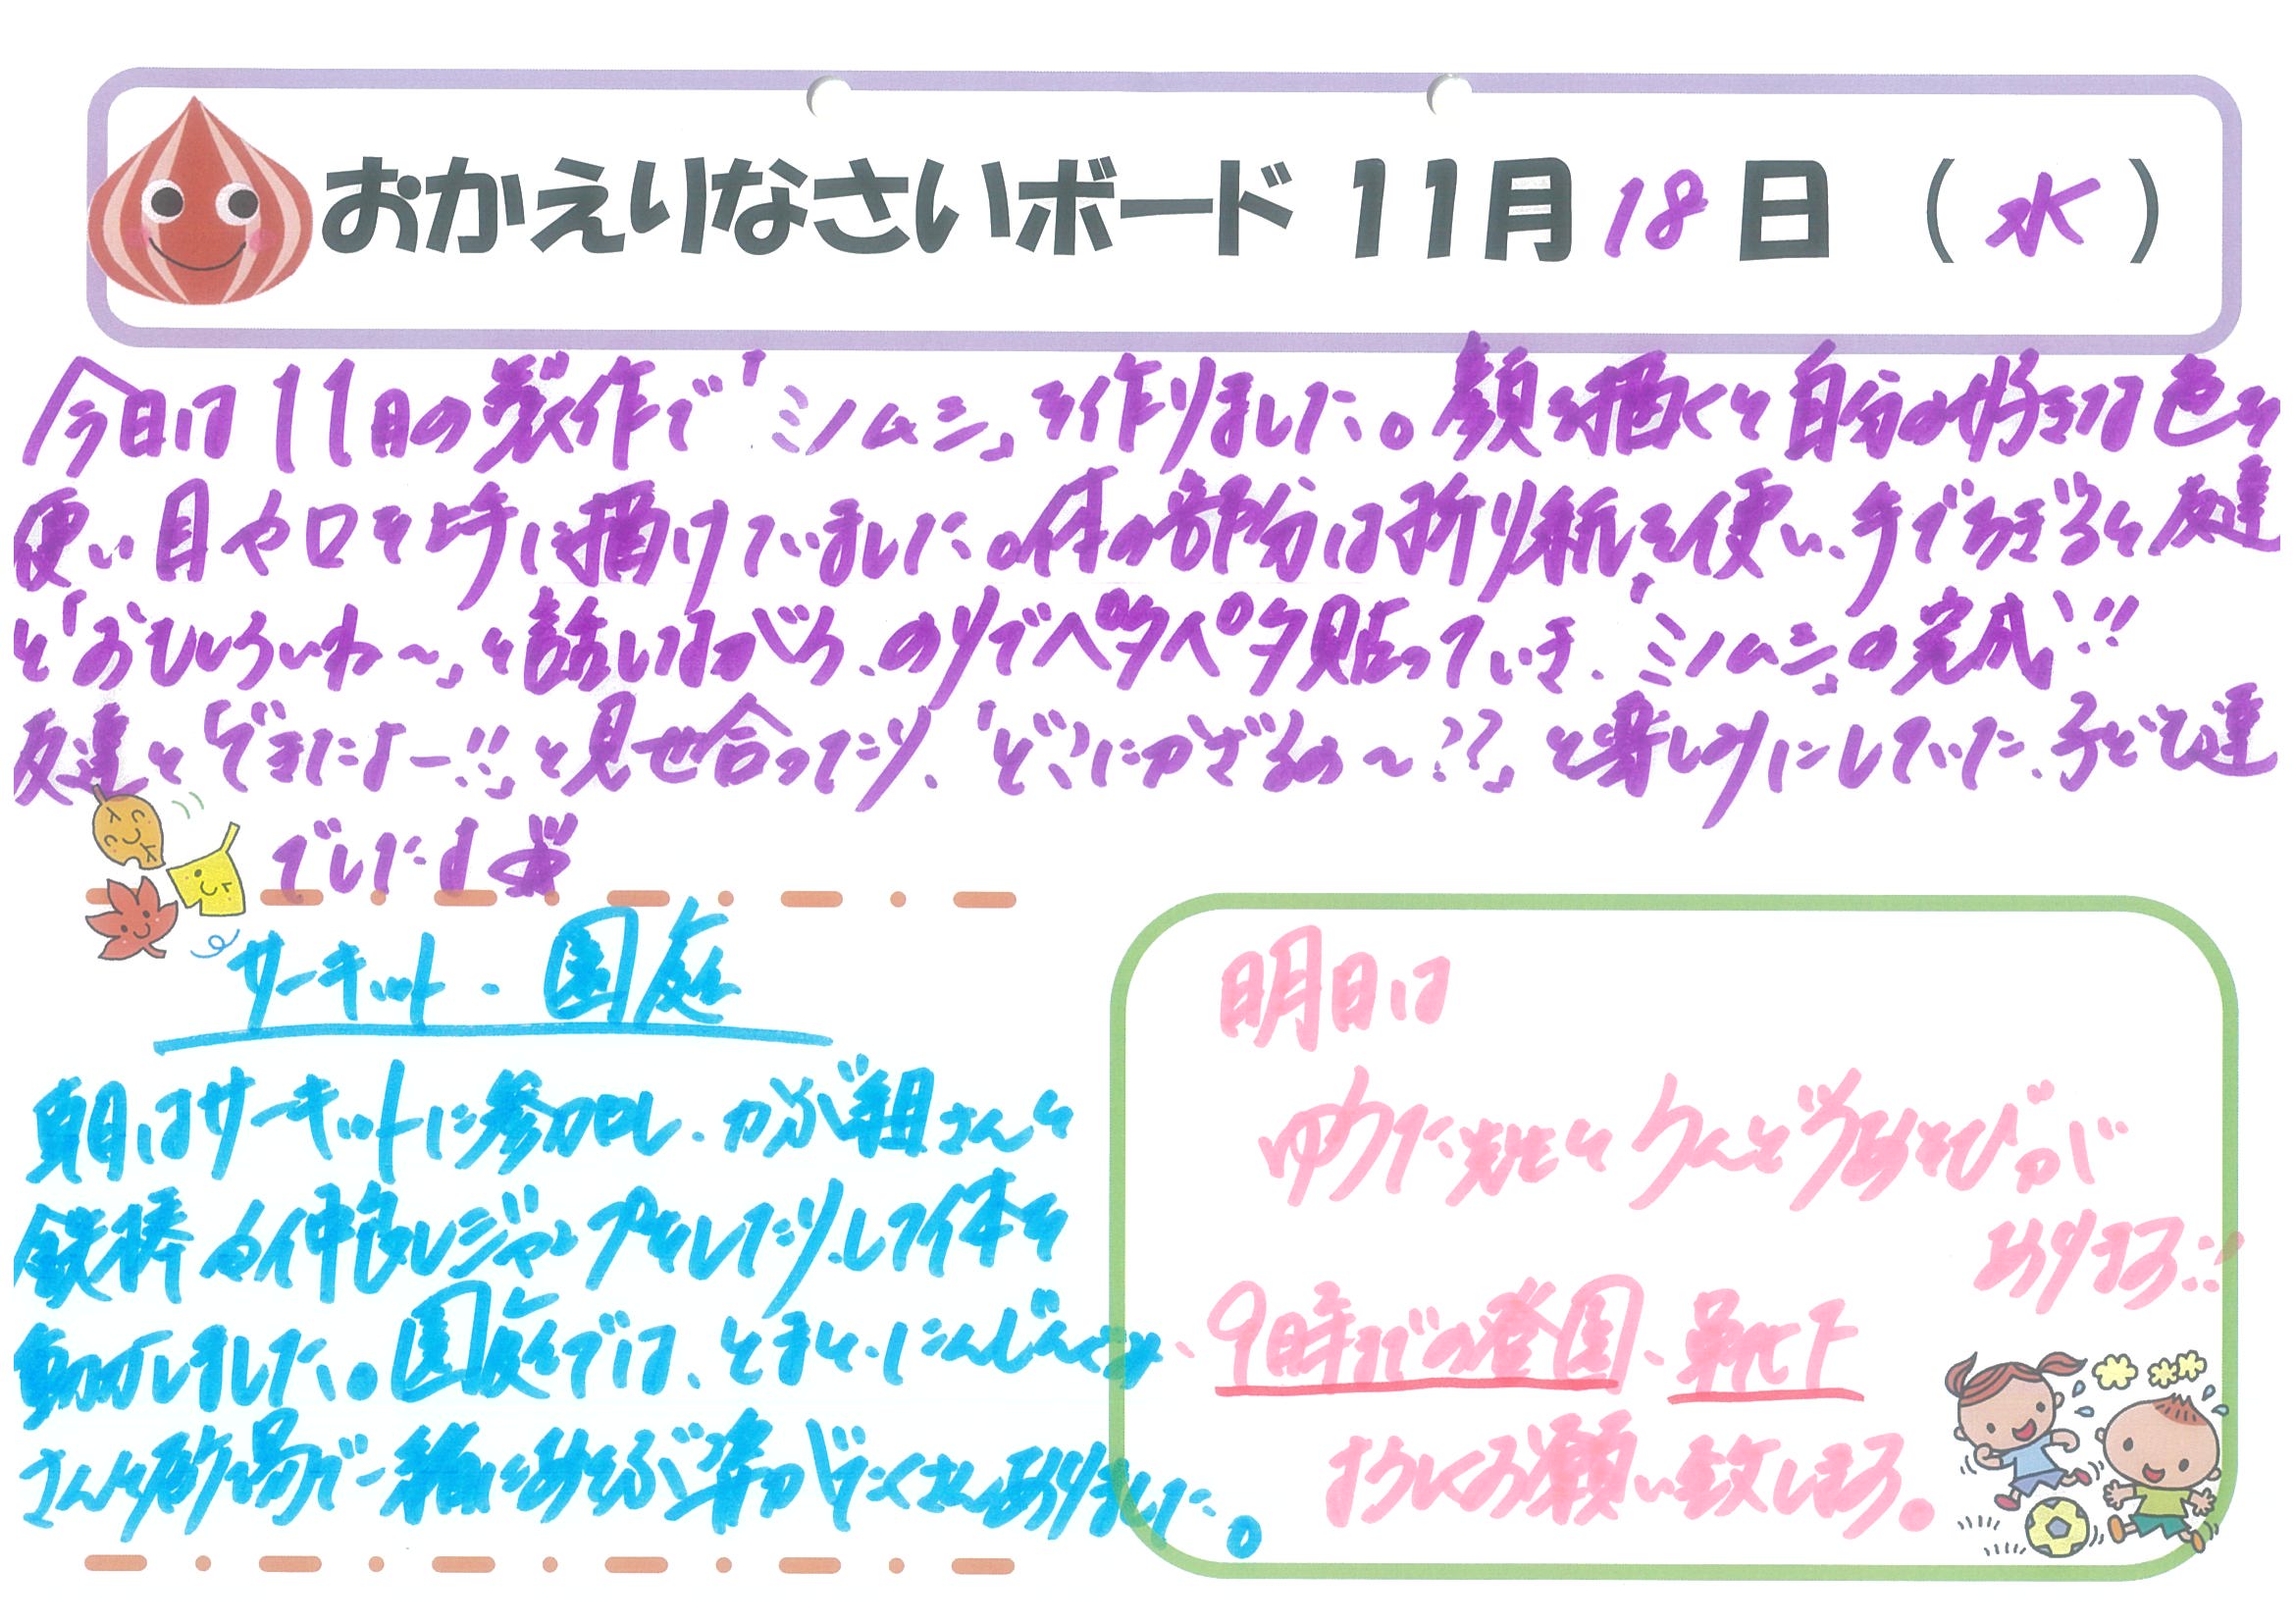 おかえりなさいボード 11月18日（水）
今日は11月の製作で「ミノムシ」を作りました。顔を描くと自分の好きな色を
使い目や口を上手に描けていました。体の部分は折り紙を使い、手でちぎると友達
と「おもしろいね〜」と話しながら、のりでペタペタ貼っていき、「ミノムシ」の完成!!
友達と「できたよー!!」と見せ合ったり、「どこにかざるの〜??」と楽しみにしていた、子ども達
でした
サーキット・園庭
朝はサーキットに参加し、かぶ組さんと
鉄棒や仲良しジャンプをしたりして体を
動かしました。園庭では、とまと・にんじんぐみ
さんと砂場で一緒にあそぶ姿がたくさんありました。
明日は
ゆうた先生とうんどうあそびが
あります!!
9時までの登園、靴下
よろしくお願い致します。